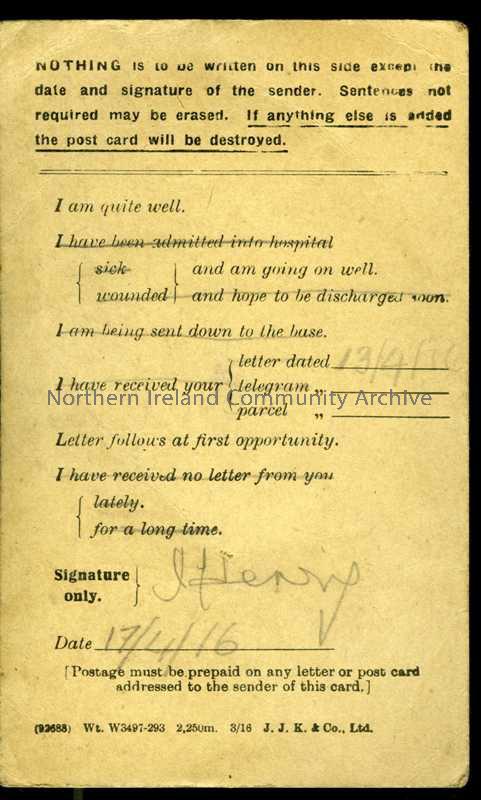 NOTHING is to be written on this side except the
date and signature of the sender. Sentences not
required may be erased. If anything else is added
the post card will be destroyed.
I am quite well.
I have been admitted into hospital
sick } and am going on well.
wounded } and hope to be discharged soon.
I am being sent down to the base.
letter dated 13/4/16
I have received your { telegram „
Northern Ireland Community Archive
parcel „
Letter follows at first opportunity.
I have received no letter from you
lately.
for a long time.
Signature
only. } Henry
Date 17/4/16
[Postage must be prepaid on any letter or post card
addressed to the sender of this card.]
(92688) Wt. W3497-293 2,250m. 3/16 J. J. K. & Co., Ltd.